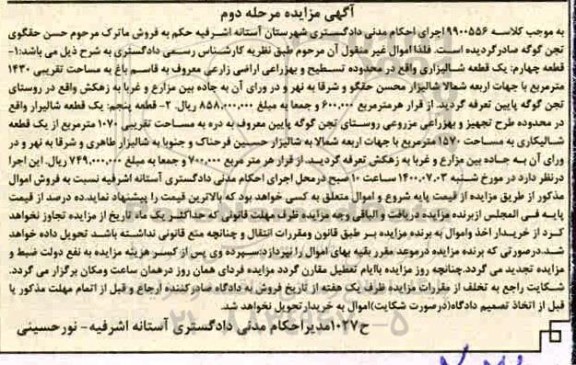 آگهی مزایده مرحله دوم
به موجب کلاسه ۹۹۰۰۵۵۶ اجرای احکام مدنی دادگستری شهرستان آستانه اشرفیه حکم به فروش ماترک مرحوم حسن حقگوی
تجن گوکه صادرگردیده است. فلذا اموال غیر منقول آن مرحوم طبق نظریه کارشناس رسمی دادگستری به شرح ذیل می باشد:۱-
قطعه چهارم: یک قطعه شالیزاری واقع در محدوده تسطیح و بهزراعی اراضی زارعی معروف به قاسم باغ به مساحت تقریبی ۱۴۳۰
مترمربع با جهات اربعه شمالا شالیزار محسن حقگو و شرقا به نهر و در ورای آن به جاده بین مزارع و غربا به زهکش واقع در روستای
تجن گوکه پایین تعرفه گردید. از قرار هرمترمربع ۶۰۰,۰۰۰ و جمعا به مبلغ ۸۵۸,۰۰۰,۰۰۰ ریال. ۲- قطعه پنجم: یک قطعه شالیزار واقع
در محدوده طرح تجهیز و بهزراعی مزروعی روستای تجن گوکه پایین معروف به دره به مساحت تقریبی ۱۰۷۰ مترمربع از یک قطعه
شالیکاری به مساحت ۱۵۷۰ مترمربع با جهات اربعه شمالا به شالیزار حسین فرحناک و جنوبا به شالیزار طاهری و شرقا به نهر و در
ورای آن به جاده بین مزارع و غربا به زهکش تعرفه گردید. از قرار هر متر مربع ۷۰۰,۰۰۰ و جمعا به مبلغ ۷۴۹,۰۰۰,۰۰۰ ریال. این اجرا
درنظر دارد در مورخ شنبه ۱۴۰۰.۰۷.۰۳ ساعت ۱۰ صبح درمحل اجرای احکام مدنی دادگستری آستانه اشرفیه نسبت به فروش اموال
مذکور از طریق مزایده از قیمت پایه شروع و اموال متعلق به کسی خواهد بود که بالاترین قیمت را پیشنهاد نماید.ده درصد از قیمت
پایه فی المجلس ازبرنده مزایده دریافت و الباقی وجه مزایده ظرف مهلت قانونی که حداکثر یک ماه تاریخ از مزایده تجاوز نخواهد
کرد از خریدار اخذ واموال به برنده مزایده بر طبق قانون ومقررات انتقال و چنانچه منع قانونی نداشته باشد تحویل داده خواهد
شد.درصورتی که برنده مزایده درموعد مقرر بقیه بهای اموال را نپردازد;سپرده وی پس از کسر هزینه مزایده به نفع دولت ضبط و
مزایده تجدید می گردد.چنانچه روز مزایده باایام تعطیل مقارن گردد مزایده فردای همان روز درهمان ساعت ومکان برگزار می گردد.
شکایت راجع به تخلف از مقررات مزایده ظرف یک هفته از تاریخ فروش به دادگاه صادرکننده ارجاع و قبل از اتمام مهلت مذکور یا
قبل از اتخاذ تصمیم دادگاه(درصورت شکایت)اموال به خریدار تحویل نخواهد شد
ح۱۰۲۷مدیراحکام مدنی دادگستری آستانه اشرفیه- نورحسینی